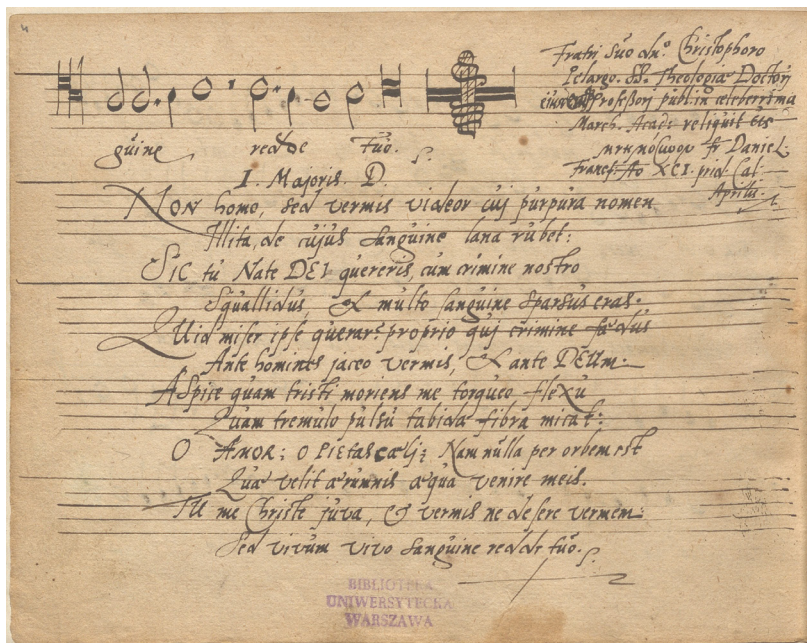 guine redde tuo.
Fratri suo dn.o Christophoro
Pelargo. SS. Theologiæ Doctori
Professori publ. in celeberrima
March. Acad. reliquit
fr Daniel.
Francf. Ao XCI. prid. Cal
Aprilis.
I. Majoris. D.
NON homo, sed vermis videor cuj purpura nomen
Illita, de cujus sanguine lana rubet:
SIC tu Nate DEI quereris, cum crimine nostro
Squallidus, & multo sanguine sparsus eras.
QUid miser ipse querar? proprio quj crimine fœdus
Ante homines jaceo vermis, & ante DEUm.
ASpice quam tristi moriens me torqueo flexu
Quam tremulo pulsu tabida fibra micat:
O AMOR; O PIEtas cælj; Nam nulla per orbem est
Quæ velit ærumnis æqua venire meis.
TU me Christe juva, & vermis ne desere vermem:
Sed vivum vivo sanguine redde tuo.
BIBLIOTEKA
UNIWERSYTECKA
WARSZAWA